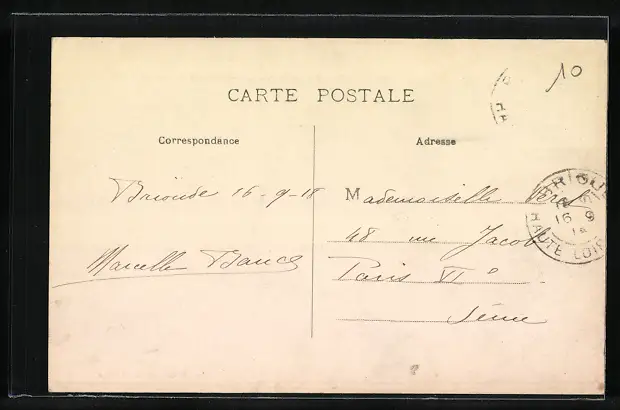 10
CARTE POSTALE
Correspondance
Adresse
Brioude 16-9-18
Mademoiselle
48 rue Jacob
Marcelle
Paris VIe
Seine
BRIOUDE
16 9
HAUTE LOIRE